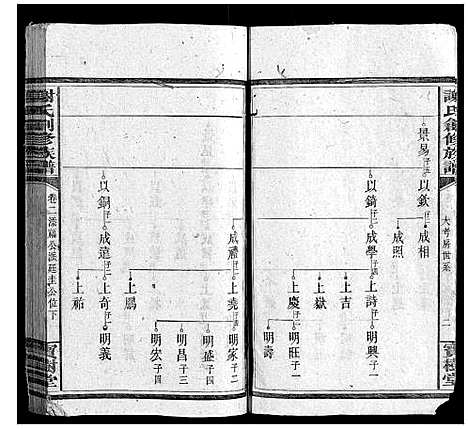 謝氏創修族譜
大孝房世系
二
寶樹堂
景易子三
以欽子二
成相
成照
以錡子一
成學子四
上詩子一
明興子一
上吉
上嶽
上慶子二
明旺子一
明壽
成禧子一
上堯子四
明家子二
明盛子四
明昌子三
明宏子四
以銅子一
成遠子三
上奇子一
明義
上鵬
上祐
謝氏創修族譜
卷二添福公派廷圭公位下
寶樹堂